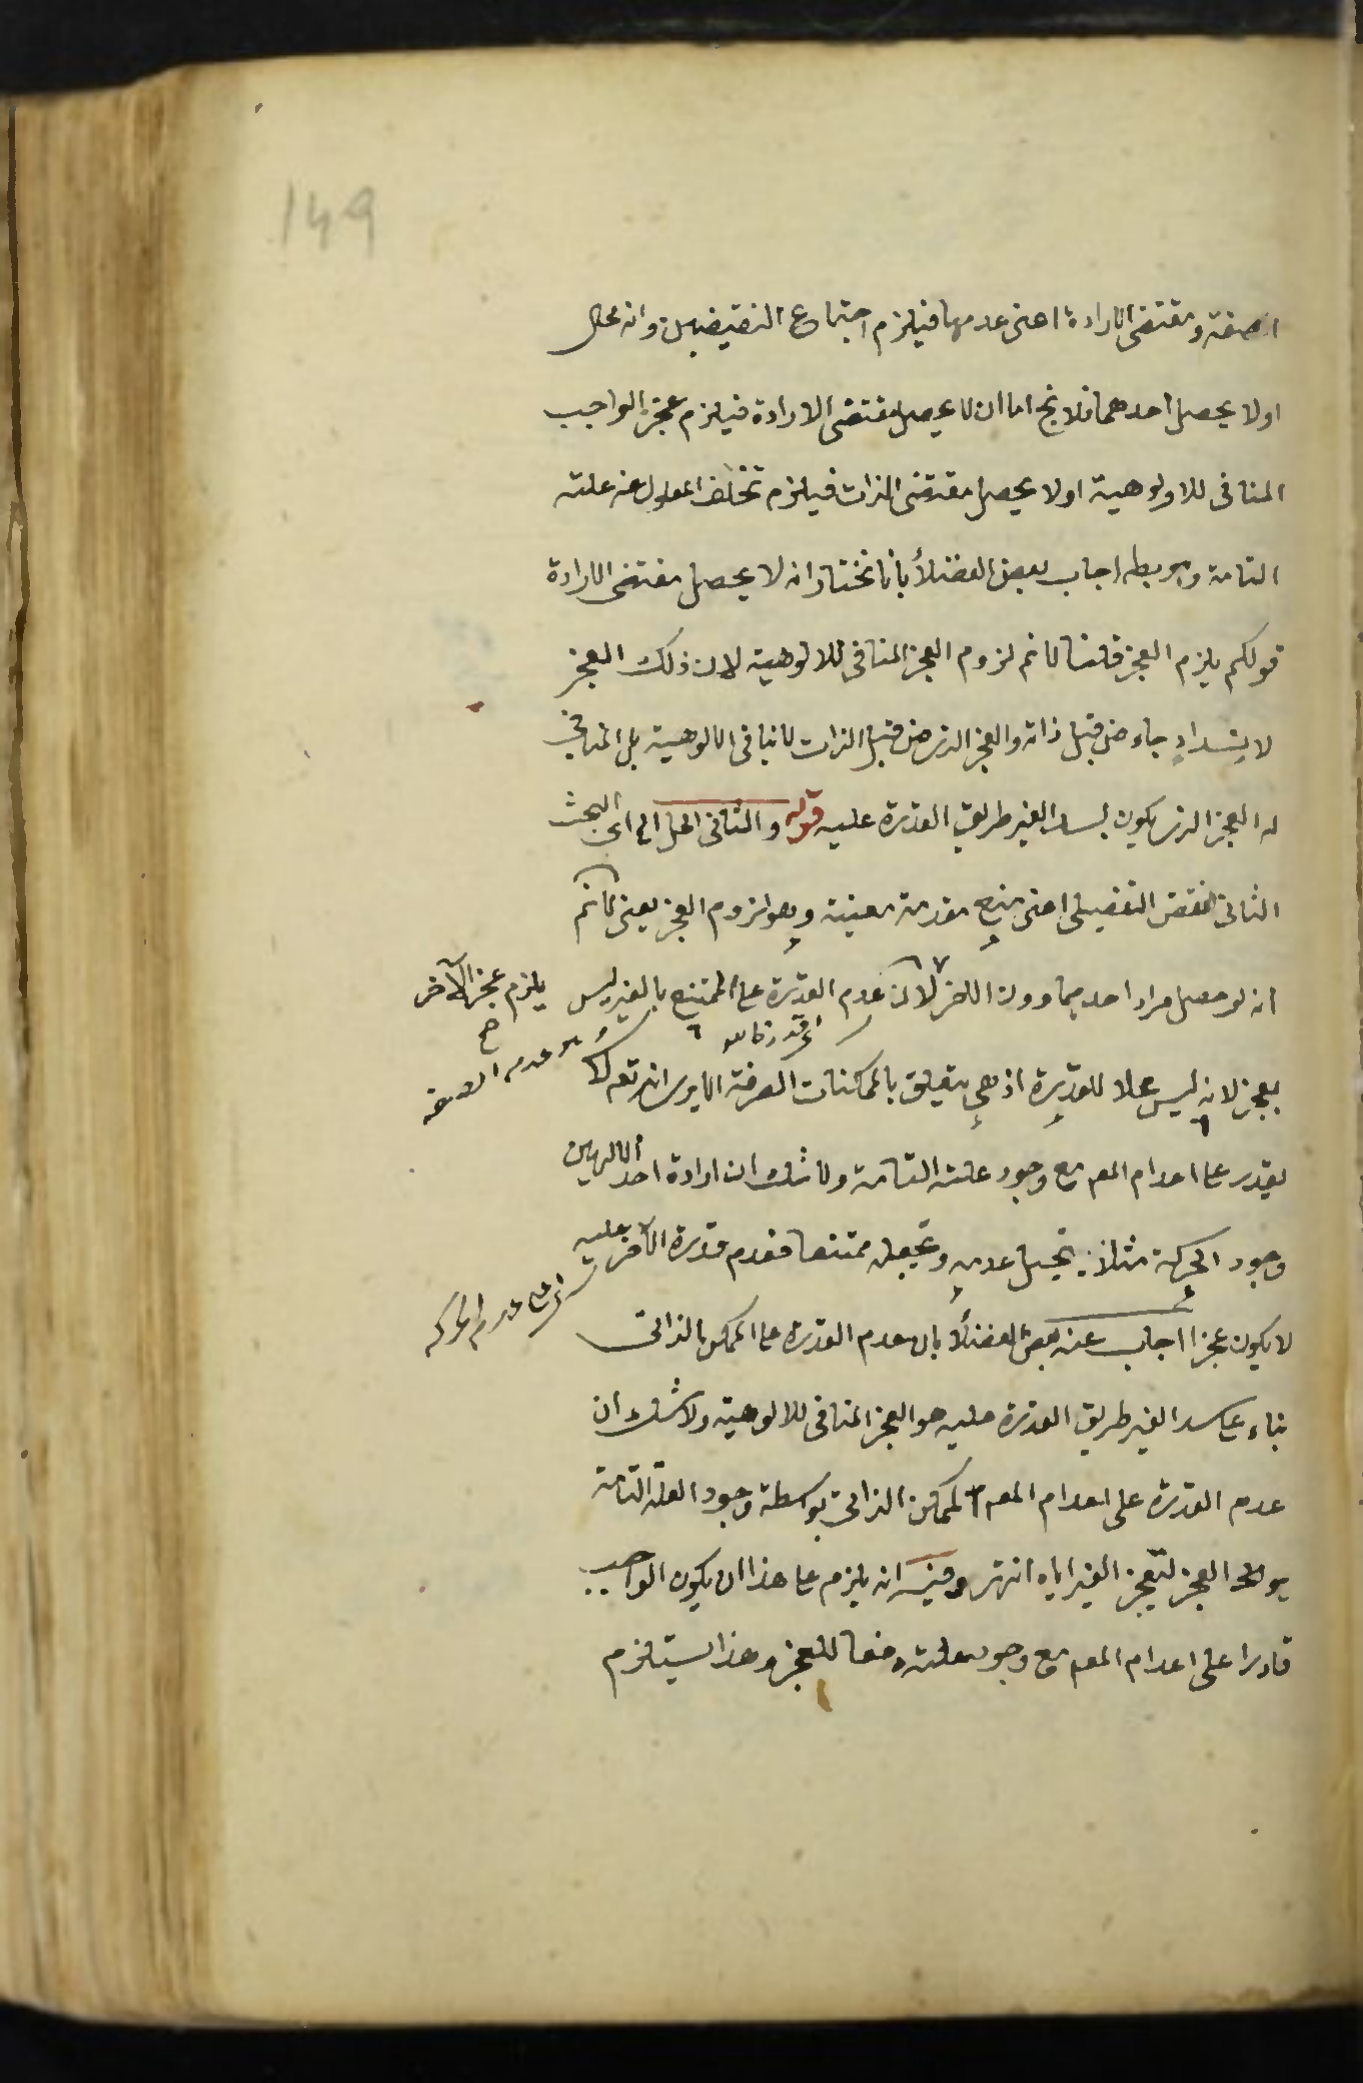 149
الصفة ومقتضى الارادة اعنى عدمها فيلزم اجتماع النقيضين وانه محال
اولا يحصل احدهما فلا يخ اما ان لا يحصل مقتضى الارادة فيلزم عجز الواجب
المنافى للالوهية اولا يحصل مقتضى الذات فيلزم تخلف المعلول عن علته
التامة وهو بط اجاب بعض الفضلأ بانا نختار انه لا يحصل مقتضى الارادة
قولكم يلزم العجز قلنا لا نم لزوم العجز المنافى للالوهية لان ذلك العجز
لانسداد جاء من قبل ذاته والعجز الذى من قبل الذات لا ينافى الالوهية بل المنافى
له العجز الذى يكون بسد الغير طريق القدرة عليه قوله والثانى الحل الخ اى البحث
الثانى النقض التفصيلى اعنى منع مقدمة معينة وهو لزوم العجز يعنى لا نم
انه لو حصل مراد احدهما دون الاخر لان عدم القدرة على الممتنع بالغير ليس
يلزم عجز الآخر
صح
بعجز لانه ليس محلا للقدرة اذ هى يتعلق بالممكنات الصرفة الا يرى انه تع لا
هو عدم الصفة
يقدر على اعدام المعم مع وجود علته التامة ولا شك ان ارادة احد الالهين
وجود الحركة مثلا يحيل عدمه ويجعله ممتنعا فعدم قدرة الآخر عليه
اى على عدم الحركة
لا يكون عجزا اجاب عنه بعض الفضلأ بان عدم القدرة على الممكن الذاتى
بناء على سد الغير طريق القدرة عليه هو العجز المنافى للالوهية ولا شك ان
عدم القدرة على اعدام المعم الممكن الذاتى بواسطة وجود العلة التامة
هو العجز لتعجيز الغير اياه انتهى وفيه انه يلزم على هذا ان يكون الواجب
قادرا على اعدام المعم مع وجود علته دفعا للعجز وهذا يستلزم